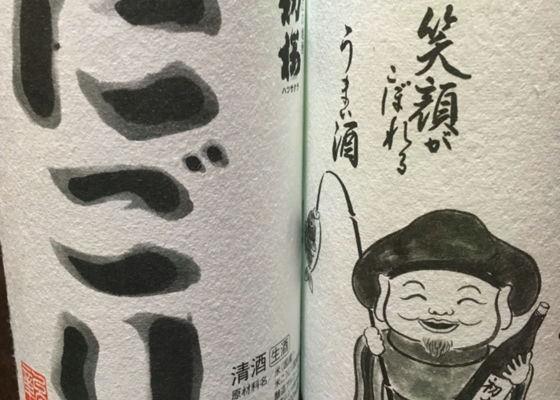 にごり
初桜
ハツザクラ
清酒 生酒
原材料名
笑顔が
こぼれる
うまい酒
初